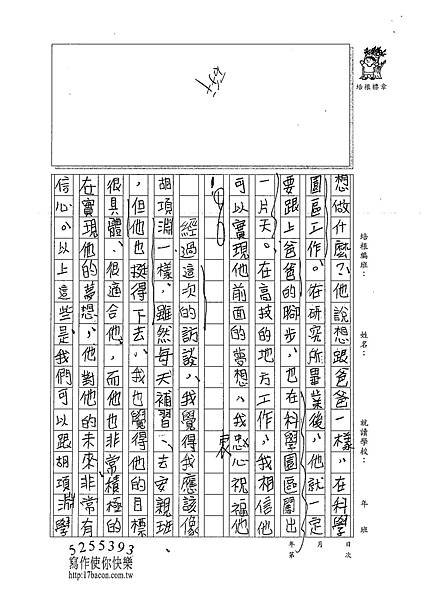 培根標章
培根編班：
姓名：
就讀學校：
年 班
月 日
年 第 次
想做什麼？他說想跟爸爸一樣，在科學
園區工作。在研究所畢業後，他就一定
要跟上爸爸的腳步，也在科學園區闖出
一片天。在高技的地方工作，我相信他
可以實現他前面的夢想，我忠心祝福他
衷
經過這次的訪談，我覺得我應該像
胡項淵一樣，雖然每天補習、去安親班
，但他也挺得下去。我也覺得他的目標
很具體、很適合他，而他也非常積極的
在實現他的夢想，他對他的未來非常有
信心。以上這些是我們可以跟胡項淵學
5255393
寫作使你快樂
http://17bacon.com.tw